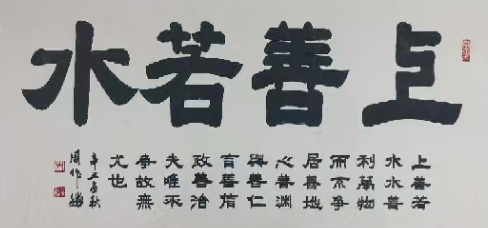 上善若水
上善若
水水善
利萬物
而不爭
居善地
心善渊
與善仁
言善信
政善治
夫唯不
爭故無
尤也
辛丑秋
周作